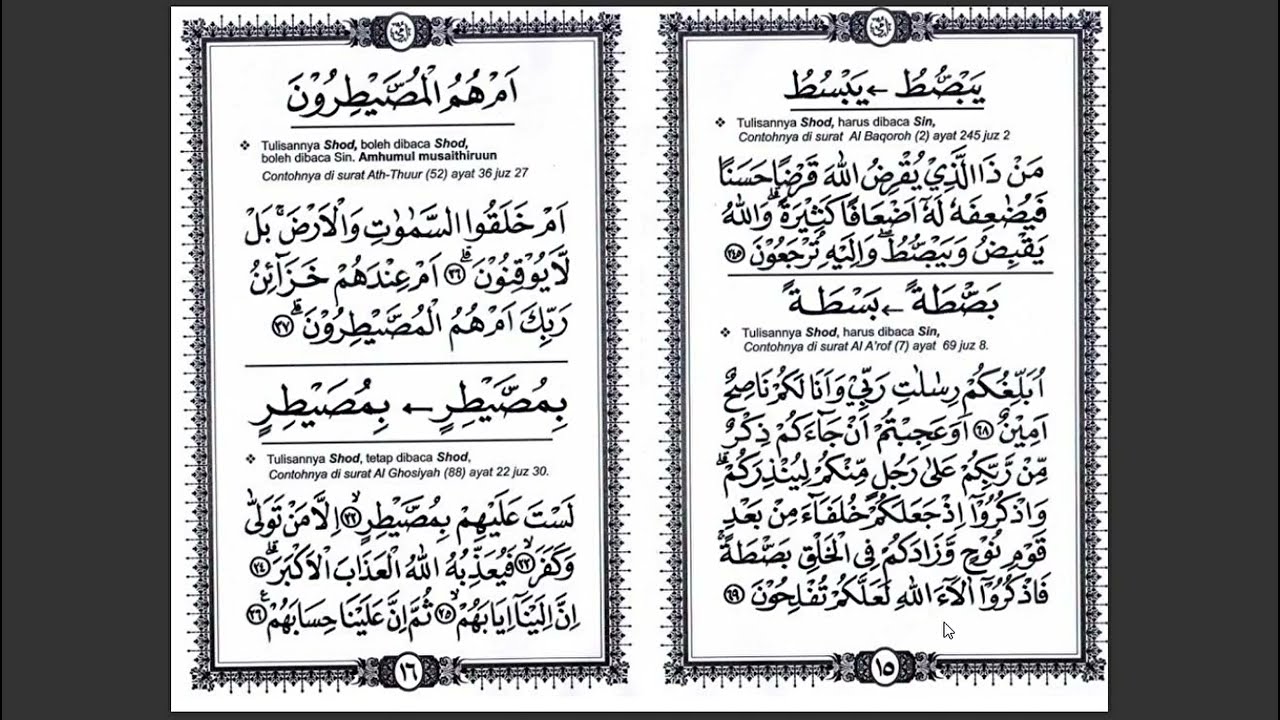 يَبْصُۜطُ ← يَبْسُطُ
❖ Tulisannya Shod, harus dibaca Sin,
Contohnya di surat Al Baqoroh (2) ayat 245 juz 2
مَنْ ذَا الَّذِيْ يُقْرِضُ اللّٰهَ قَرْضًا حَسَنًا
فَيُضٰعِفَهٗ لَهٗٓ اَضْعَافًا كَثِيْرَةً ۗ وَاللّٰهُ
يَقْبِضُ وَيَبْصُۜطُ ۖ وَاِلَيْهِ تُرْجَعُوْنَ ٢٤٥
بَصْۜطَةً ← بَسْطَةً
❖ Tulisannya Shod, harus dibaca Sin,
Contohnya di surat Al A'rof (7) ayat 69 juz 8.
اُبَلِّغُكُمْ رِسٰلٰتِ رَبِّيْ وَاَنَا لَكُمْ نَاصِحٌ
اَمِيْنٌ ٦٨ اَوَعَجِبْتُمْ اَنْ جَاۤءَكُمْ ذِكْرٌ
مِّنْ رَّبِّكُمْ عَلٰى رَجُلٍ مِّنْكُمْ لِيُنْذِرَكُمْ ۗ
وَاذْكُرُوْٓا اِذْ جَعَلَكُمْ خُلَفَاۤءَ مِنْ بَعْدِ
قَوْمِ نُوْحٍ وَّزَادَكُمْ فِى الْخَلْقِ بَصْۜطَةً ۚ
فَاذْكُرُوْٓا اٰلَاۤءَ اللّٰهِ لَعَلَّكُمْ تُفْلِحُوْنَ ٦٩
١٥
اَمْ هُمُ الْمُصَۜيْطِرُوْنَ
❖ Tulisannya Shod, boleh dibaca Shod,
boleh dibaca Sin. Amhumul musaithiruun
Contohnya di surat Ath-Thuur (52) ayat 36 juz 27
اَمْ خَلَقُوا السَّمٰوٰتِ وَالْاَرْضَ ۚ بَلْ
لَّا يُوْقِنُوْنَ ۗ ٣٦ اَمْ عِنْدَهُمْ خَزَاۤىِٕنُ
رَبِّكَ اَمْ هُمُ الْمُصَۜيْطِرُوْنَ ۗ ٣٧
بِمُصَۜيْطِرٍ ← بِمُصَيْطِرٍ
❖ Tulisannya Shod, tetap dibaca Shod,
Contohnya di surat Al Ghosiyah (88) ayat 22 juz 30.
لَسْتَ عَلَيْهِمْ بِمُصَۜيْطِرٍ ۙ ٢٢ اِلَّا مَنْ تَوَلّٰى
وَكَفَرَ ۙ ٢٣ فَيُعَذِّبُهُ اللّٰهُ الْعَذَابَ الْاَكْبَرَ ۗ ٢٤
اِنَّ اِلَيْنَآ اِيَابَهُمْ ۙ ٢٥ ثُمَّ اِنَّ عَلَيْنَا حِسَابَهُمْ ࣖ ٢٦
١٦